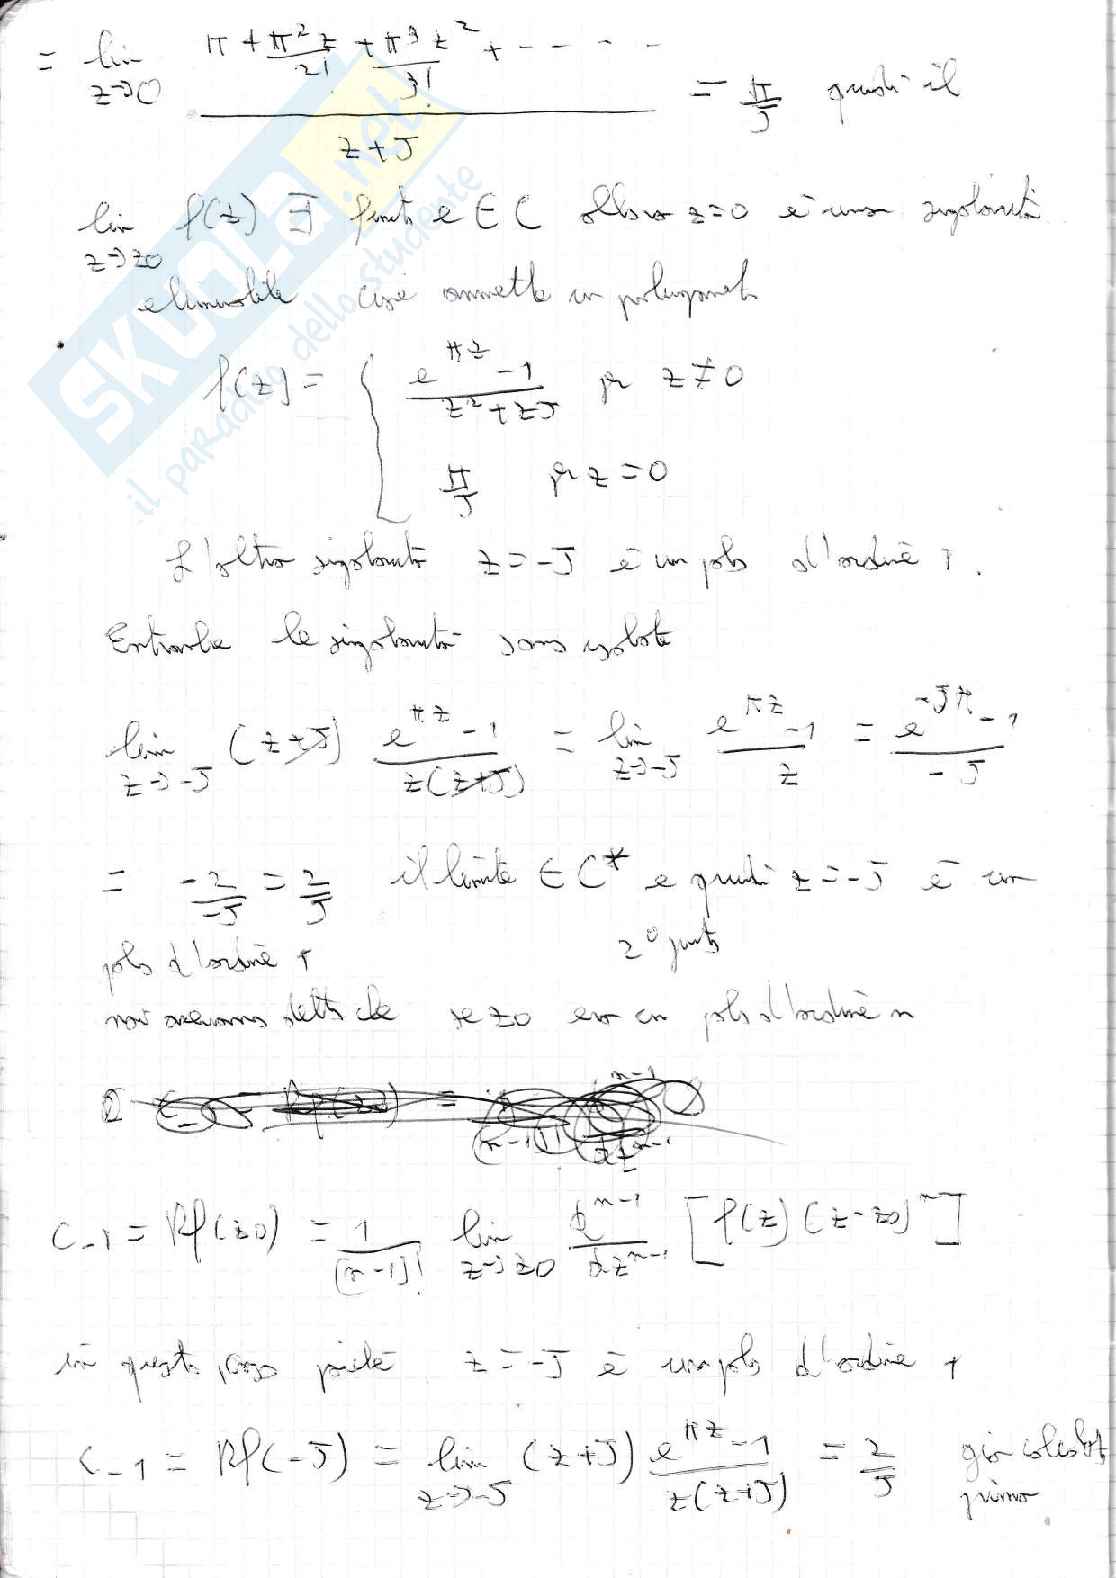 = lim z→0 (π + π²z/2! + π³z²/3! + - - - -) / (z+J) = π/J quindi il
lim z→z0 f(z) ∃ finito e ∈ C allora z=0 è una singolarità
eliminabile cioè ammette un prolungamento
f(z) = { (e^{πz} - 1)/(z²+zJ) per z≠0
π/J per z=0
L'altra singolarità z=-J è un polo d'ordine 1.
Entrambe le singolarità sono isolate
lim z→-J (z+J) (e^{πz} - 1)/(z(z+J)) = lim z→-J (e^{πz} - 1)/z = (e^{-Jπ} - 1)/(-J)
= -2/-J = 2/J il limite ∈ C* e quindi z=-J è un
polo d'ordine 1
2° punto
noi avevamo detto che se z0 era un polo d'ordine n
C-1 = Rf(z0) = 1/(n-1)! lim z→z0 d^{n-1}/dz^{n-1} [f(z)(z-z0)^n]
in questo caso poiché z=-J è un polo d'ordine 1
C-1 = Rf(-J) = lim z→-J (z+J) (e^{πz} - 1)/(z(z+J)) = 2/J già calcolato
prima
SKUOLA.net
il paradiso dello studente